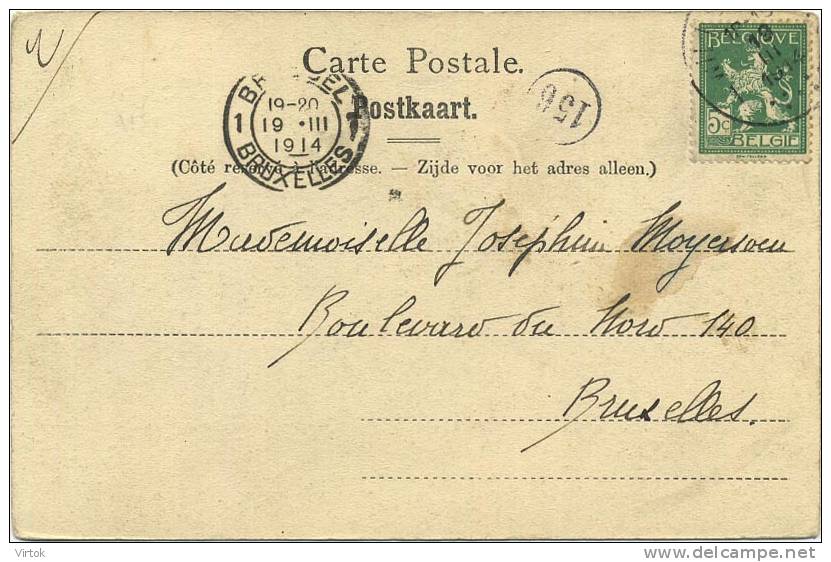 Carte Postale.
Postkaart.
(Côté réservé à l'adresse. — Zijde voor het adres alleen.)
BRUSSEL
1 19-20 1
19 •III
1914
BRUXELLES
156
BELGIQUE
5c
BELGIË
Mademoiselle Joséphine Moyersoen
Boulevard du Nord 140
Bruxelles.
Virtok
delcampe.net